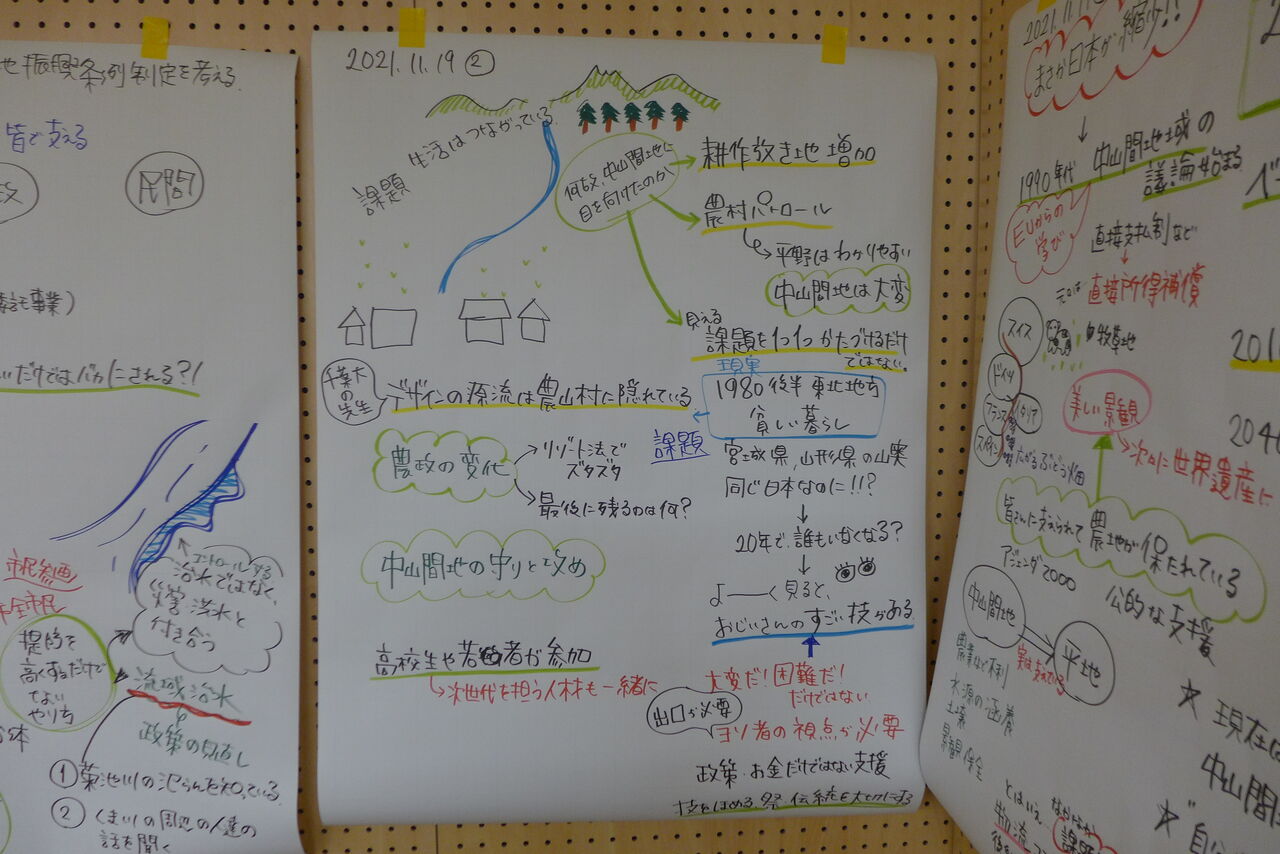 振興条例制定を考える
皆で支える
民間
事業)
だけではバカにされる?!
コントロールする
治水ではなく、
災害 洪水と
付き合う
市民参画
全市民
堤防を
高くするだけで
よい
やり方
流域治水
政策の見直し
① 菊池川の氾らんを知っている
② くまがわの周辺の人達の
話を聞く
2021.11.19 ②
生活はつながっている
課題
何故、中山間地に
目を向けたのか
耕作放き地 増加
農村パトロール
平野はわかりやすい
中山間地は大変
見える
課題を1つ1つかたづけるだけ
ではない。
現実
千葉大
の先生
デザインの源流は農山村に隠れている
1980後半 東北地方
貧しい暮らし
課題
農政の変化
リゾート法で
ズタズタ
最後に残るのは何?
宮城県,山形県の山奥
同じ日本なのに!!?
20年で、誰もいなくなる?
よーく見ると、
おじいさんのすごい技がある
中山間地の守りと攻め
高校生や若者が参加
次世代を担う人材も一緒に
大変だ!困難だ!
だけではない
出口が必要
ヨソ者の視点が必要
政策・お金だけではない支援
技をほめる 祭 伝統を大切にする
2021.11.1
まさか日本が縮少!!
1990年代
中山間地域の
議論始まる
EUからの
学び
直接支払制など
元々は
直接所得補償
スイス
ドイツ
フランス
イタリア
スペイン
牧草地
ぶどう畑
美しい景観
次々に世界遺産に
皆さんに支えられて農地が保たれている
アジェンダ2000
公的な支援
中山間地
平地
実は支えている
農業など不利
水源の涵養
土壌
景観保全
★ 現在は
中山間
★ 自分
とはいえ… なかなか
物流
課題
201
204